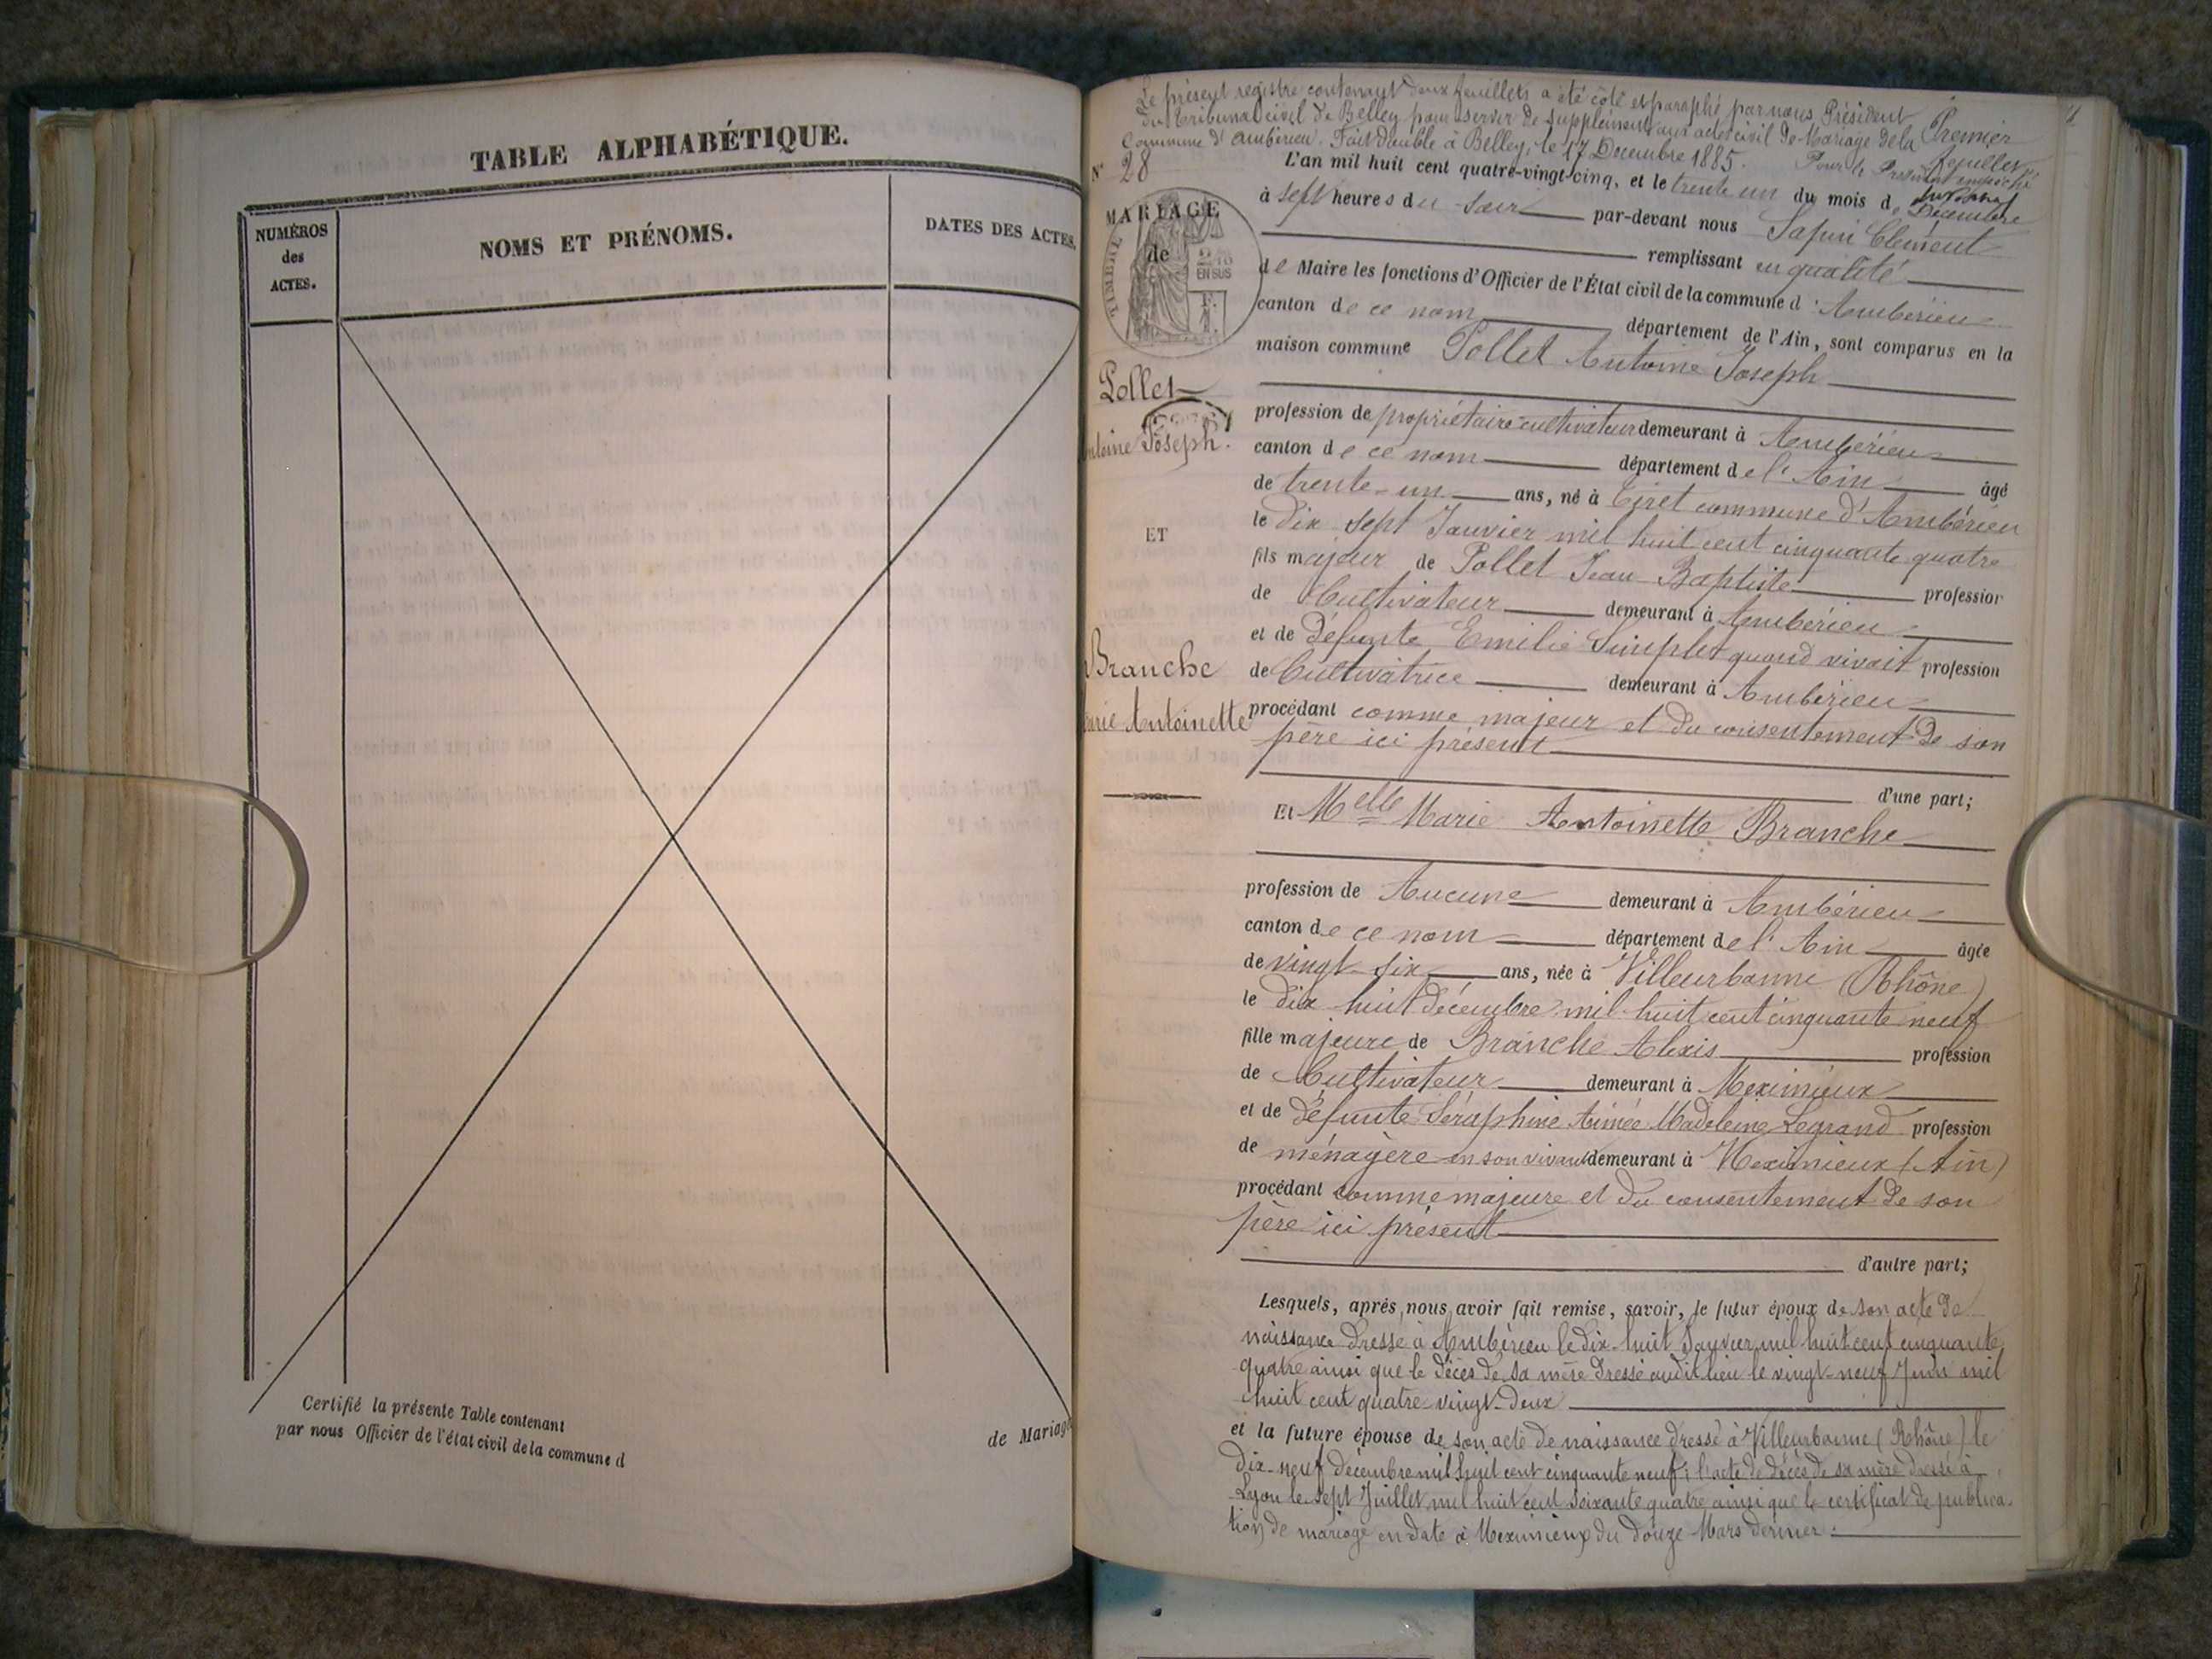 TABLE ALPHABÉTIQUE.
NUMÉROS
des
ACTES.
NOMS ET PRÉNOMS.
DATES DES ACTES.
Certifié la présente Table contenant
de Mariage
par nous Officier de l'état civil de la commune d
Le présent registre contenant deux feuillets a été côté et paraphé par nous, Président
du Tribunal civil de Belley pour servir de supplément aux actes civil de Mariage de la
Commune d'Ambérieu. Fait double à Belley, le 17 Décembre 1885.
Premier
feuillet
Pour le Président empêché
N° 28
MARIAGE
de
TIMBRE
2/10
EN SUS
Pollet
Antoine Joseph.
ET
Branche
Marie Antoinette
L'an mil huit cent quatre-vingt-cinq, et le trente un du mois de Décembre
à sept heures du soir par-devant nous Sapin Clément
remplissant en qualité
de Maire les fonctions d'Officier de l'État civil de la commune d'Ambérieu
canton de ce nom département de l'Ain, sont comparus en la
maison commune Pollet Antoine Joseph
profession de propriétaire cultivateur demeurant à Ambérieu
canton de ce nom département de l'Ain âgé
de trente-un ans, né à Tiret commune d'Ambérieu
le dix sept Janvier mil huit cent cinquante quatre
fils majeur de Pollet Jean-Baptiste profession
de Cultivateur demeurant à Ambérieu
et de défunte Emilie Simplet quand vivait profession
de Cultivatrice demeurant à Ambérieu
procédant comme majeur et du consentement de son
père ici présent
d'une part;
Et Melle Marie Antoinette Branche
profession de Aucune demeurant à Ambérieu
canton de ce nom département de l'Ain âgée
de vingt-six ans, née à Villeurbanne (Rhône)
le dix-huit décembre mil huit cent cinquante neuf
fille majeure de Branche Alexis profession
de Cultivateur demeurant à Meximieux
et de défunte Séraphine Aimée Madeleine Legrand profession
de ménagère en son vivant demeurant à Meximieux (Ain)
procédant comme majeure et du consentement de son
père ici présent
d'autre part;
Lesquels, après nous avoir fait remise, savoir, le futur époux de son acte de
naissance dressé à Ambérieu le dix-huit Janvier mil huit cent cinquante
quatre ainsi que le décès de sa mère dressé audit lieu le vingt-neuf Juin mil
huit cent quatre-vingt-deux
et la future épouse de son acte de naissance dressé à Villeurbanne (Rhône) le
dix-neuf décembre mil huit cent cinquante neuf; l'acte de décès de sa mère dressé à
Lyon le sept Juillet mil huit cent soixante quatre ainsi que le certificat de publica-
tion de mariage en date à Meximieux du douze Mars dernier :